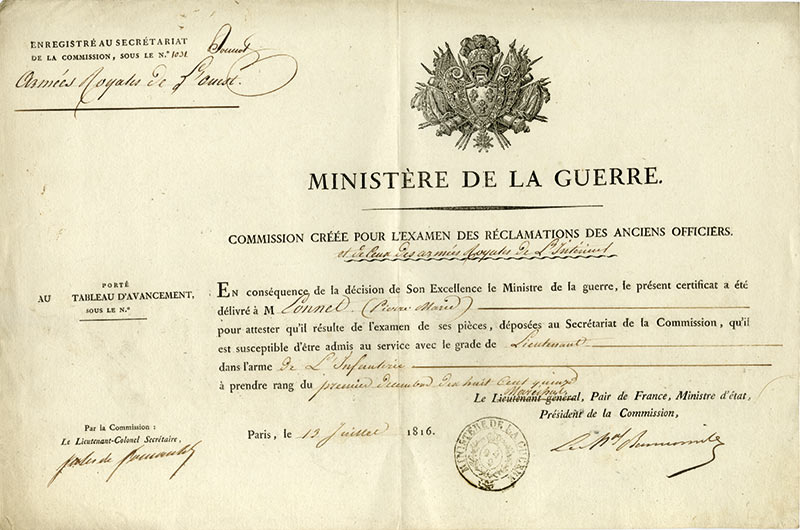 ENREGISTRÉ AU SECRÉTARIAT
DE LA COMMISSION, SOUS LE N.º 1031.
Armées Royales de L'ouest.
MINISTÈRE DE LA GUERRE.
COMMISSION CRÉÉE POUR L'EXAMEN DES RÉCLAMATIONS DES ANCIENS OFFICIERS.
et de Ceux des armées Royales de L'Intérieur
PORTÉ
AU TABLEAU D'AVANCEMENT,
SOUS LE N.º
EN conséquence, de la décision de Son Excellence le Ministre de la guerre, le présent certificat a été
délivré à M (Pierre Marie)
pour attester qu'il résulte de l'examen de ses pièces, déposées au Secrétariat de la Commission, qu'il
est susceptible d'être admis au service avec le grade de Lieutenant
dans l'arme de L'Infanterie
à prendre rang du premier décembre dix huit Cent quinze
Maréchal
Le Lieutenant général, Pair de France, Ministre d'état,
Président de la Commission,
Par la Commission :
Le Lieutenant-Colonel Secrétaire,
Paris, le 13 Juillet 1816.
MINISTÈRE DE LA GUERRE